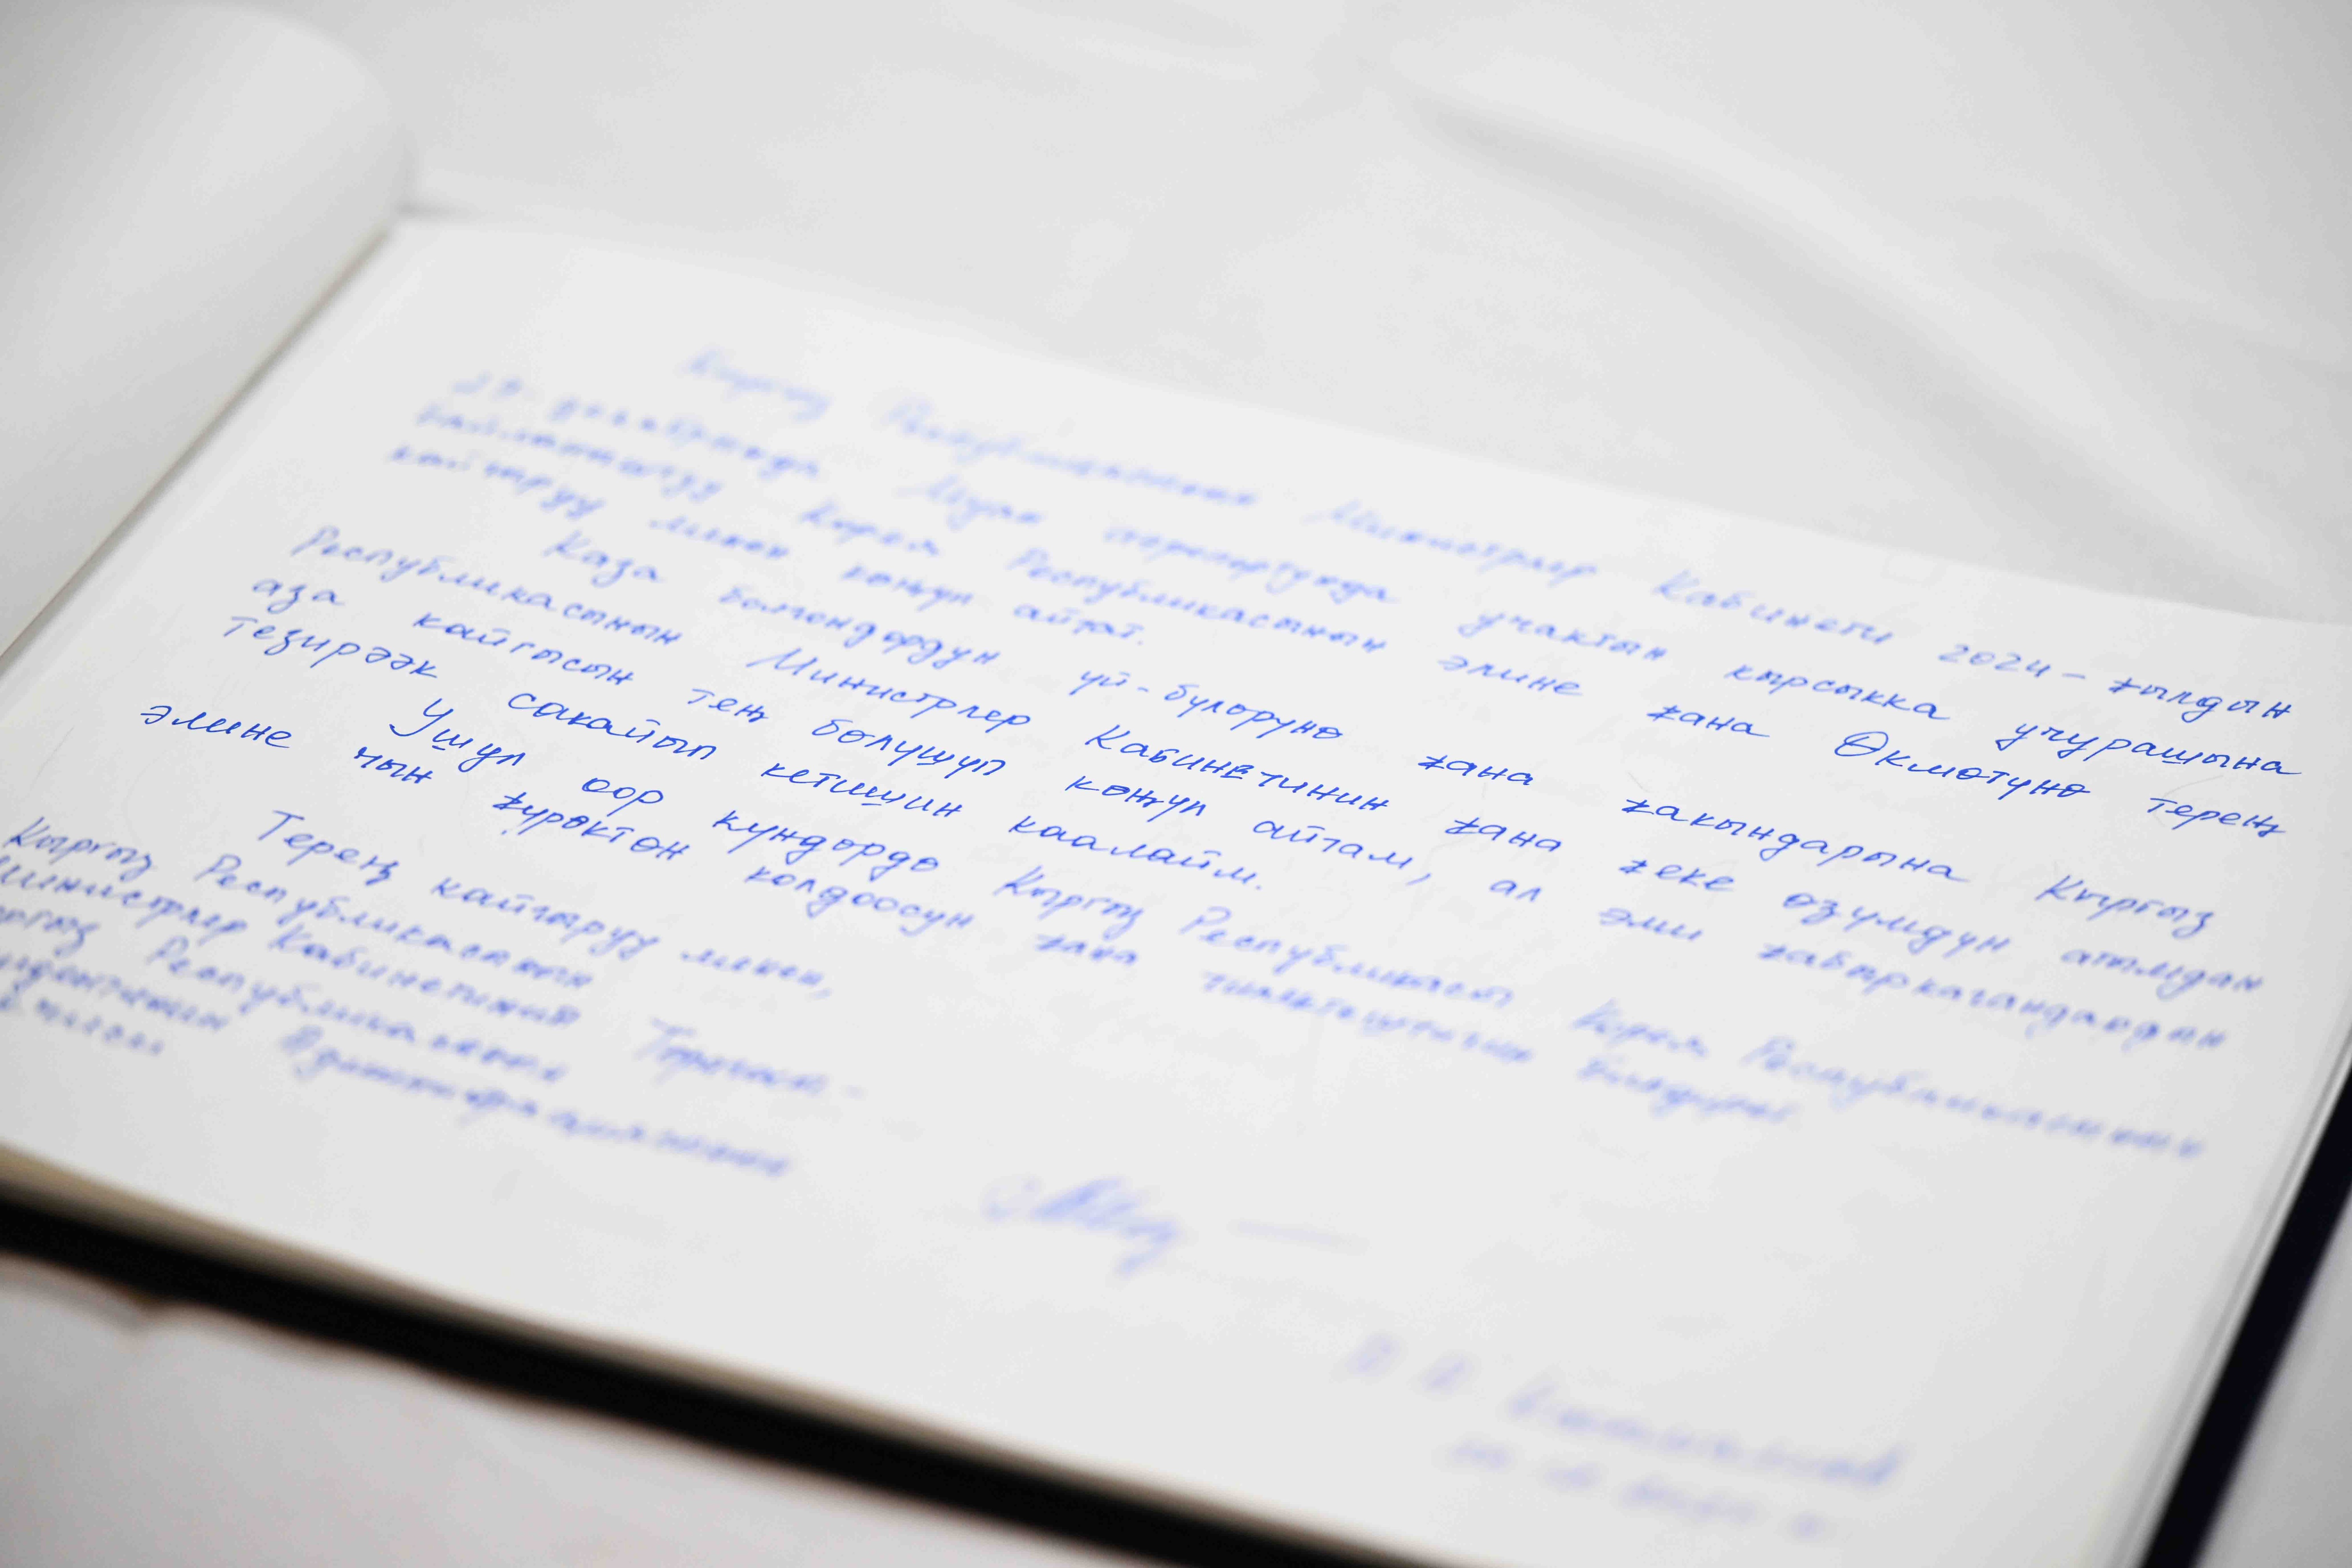 Кыргыз Республикасынын Министрлер Кабинети 2024 - жылдын
29 - декабрында Муан портунда учактын кырсыкка учурашына
байланыштуу Корея Республикасынын элине жана Өкмөтүнө терең
кайгыруу менен көңүл айтат.
Каза болгондордун үй-бүлөрүнө жана жакындарына Кыргыз
Республикасынын Министрлер Кабинетинин жана жеке өзүмдүн атымдан
аза кайгысын тең бөлүшүп көңүл айтам, ал эми жабыркагандардан
тезирээк сакайып кетишин каалайм.
Ушул оор күндөрдө Кыргыз Республикасы Корея Республикасынын
элине чын жүрөктөн колдоосун жана тилектештигин билдирет.
Терең кайгыруу менен,
Кыргыз Республикасынын
Министрлер Кабинетинин Төрагасы -
Кыргыз Республикасынын
Администрациясынын